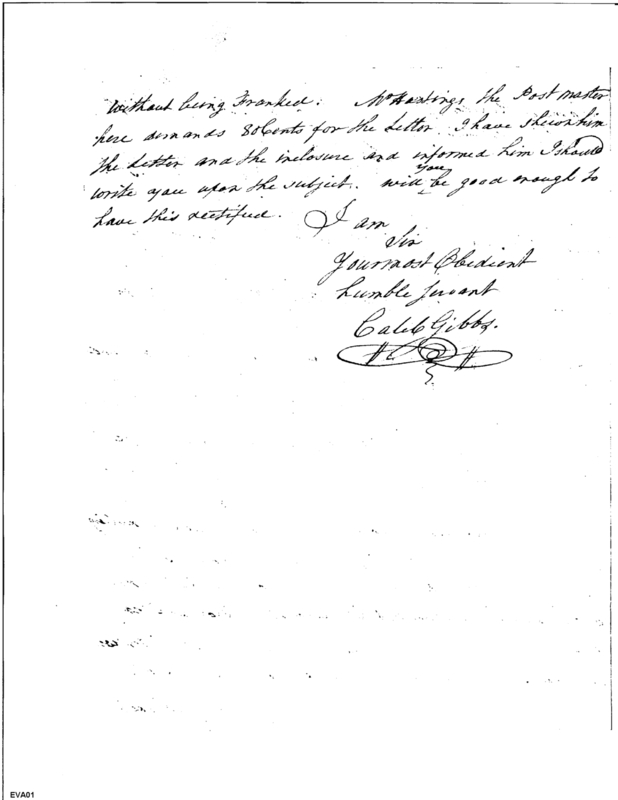 without being Franked. Mr Hastings the Post master
here demands 80 Cents for the Letter I have shewn him
the Letter and the inclosure and informed him I should
write you upon the subject. will you be good enough to
have this rectified.
I am
Sir
Your most Obedient
humble servant
Caleb Gibbs.
EVA01